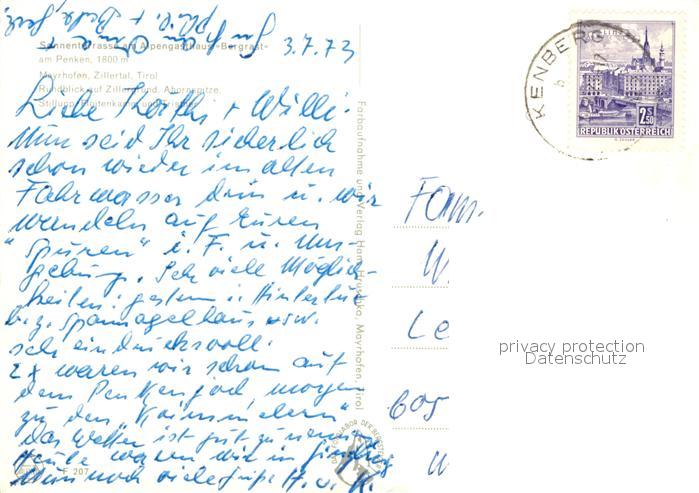 3.7.73
Sonnenterrasse am Alpengasthaus "Bergrast"
am Penken, 1800 m
Mayrhofen, Zillertal, Tirol
Rundblick auf Zillergrund, Ahornspitze,
Stillupp
Liebe Käthi + Willi.
Nun seid Ihr sicherlich
schon wieder im alten
Fahrwasser drin u. wir
wandeln auf Euren
"Spuren" i. F. u. Um-
gebung. Sehr viele Möglich-
keiten: gestern i. Hintertux
b. z. Spannagelhaus usw.
sehr eindrucksvoll.
2x waren wir schon auf
dem Penkenjoch, morgen
zu den
Das Wetter ist gut zu nennen
Heute waren wir in
Nun noch viele Grüße H. u. H.
F 207
Farbaufnahme und Verlag Hans Hruschka, Mayrhofen, Tirol
KENBERG
2 S 50
REPUBLIK ÖSTERREICH
Fam.
W
Le
605
W
privacy protection
Datenschutz